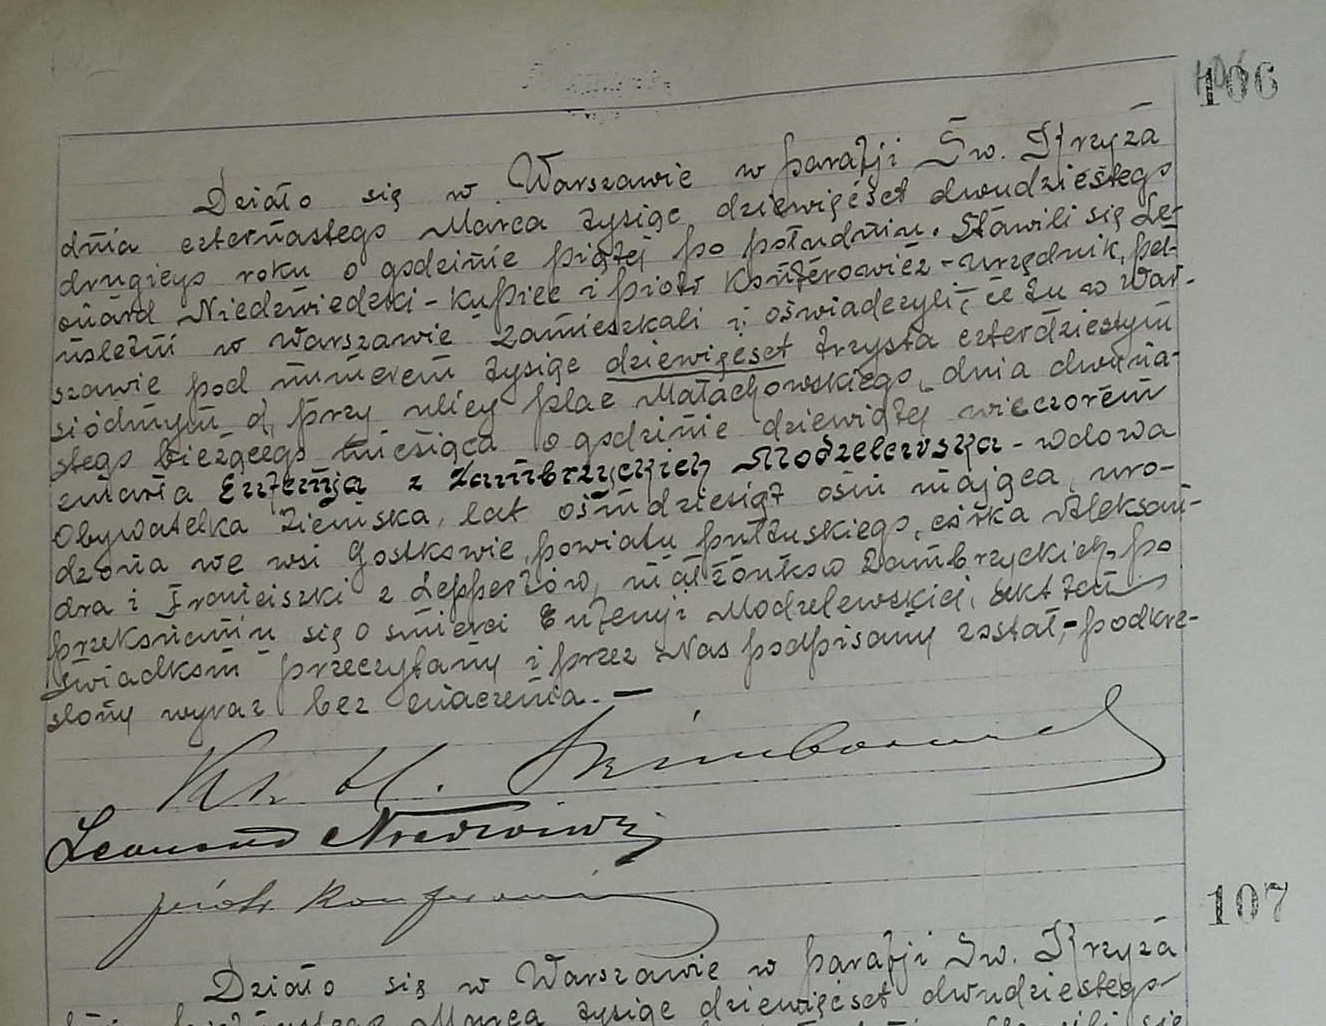 106
Działo się w Warszawie w parafji Św. Krzyża
dnia czternastego Marca tysiąc dziewięćset dwudziestego
drugiego roku o godzinie piątej po południu. Stawili się Le-
onard Niedzwiedzki - kupiec i Piotr - urzędnik, peł-
noletni w Warszawie zamieszkali i oświadczyli, że tu w War-
szawie pod numerem tysiąc dziewięćset trzysta czterdziestym
siódmym d, przy ulicy plac Małachowskiego, dnia dwuna-
stego bieżącego miesiąca o godzinie dziewiątej wieczorem
zmarła Eufemja z Zambrzyckich Modzelewska - wdowa
Obywatelka Ziemska, lat ośmdziesiąt ośm mająca, uro-
dzona we wsi Gostkowie, powiatu pułtuskiego, córka Aleksan-
dra i Franciszki z Leppertów, małżonków Zambrzyckich. Po
przekonaniu się o śmierci Eufemji Modzelewskiej, akt ten
świadkom przeczytany i przez Nas podpisany został, - podkre-
ślony wyraz bez znaczenia. -
Ks. H.
Leonard
Piotr
107
Działo się w Warszawie w parafji Św. Krzyża
Marca tysiąc dziewięćset dwudziestego